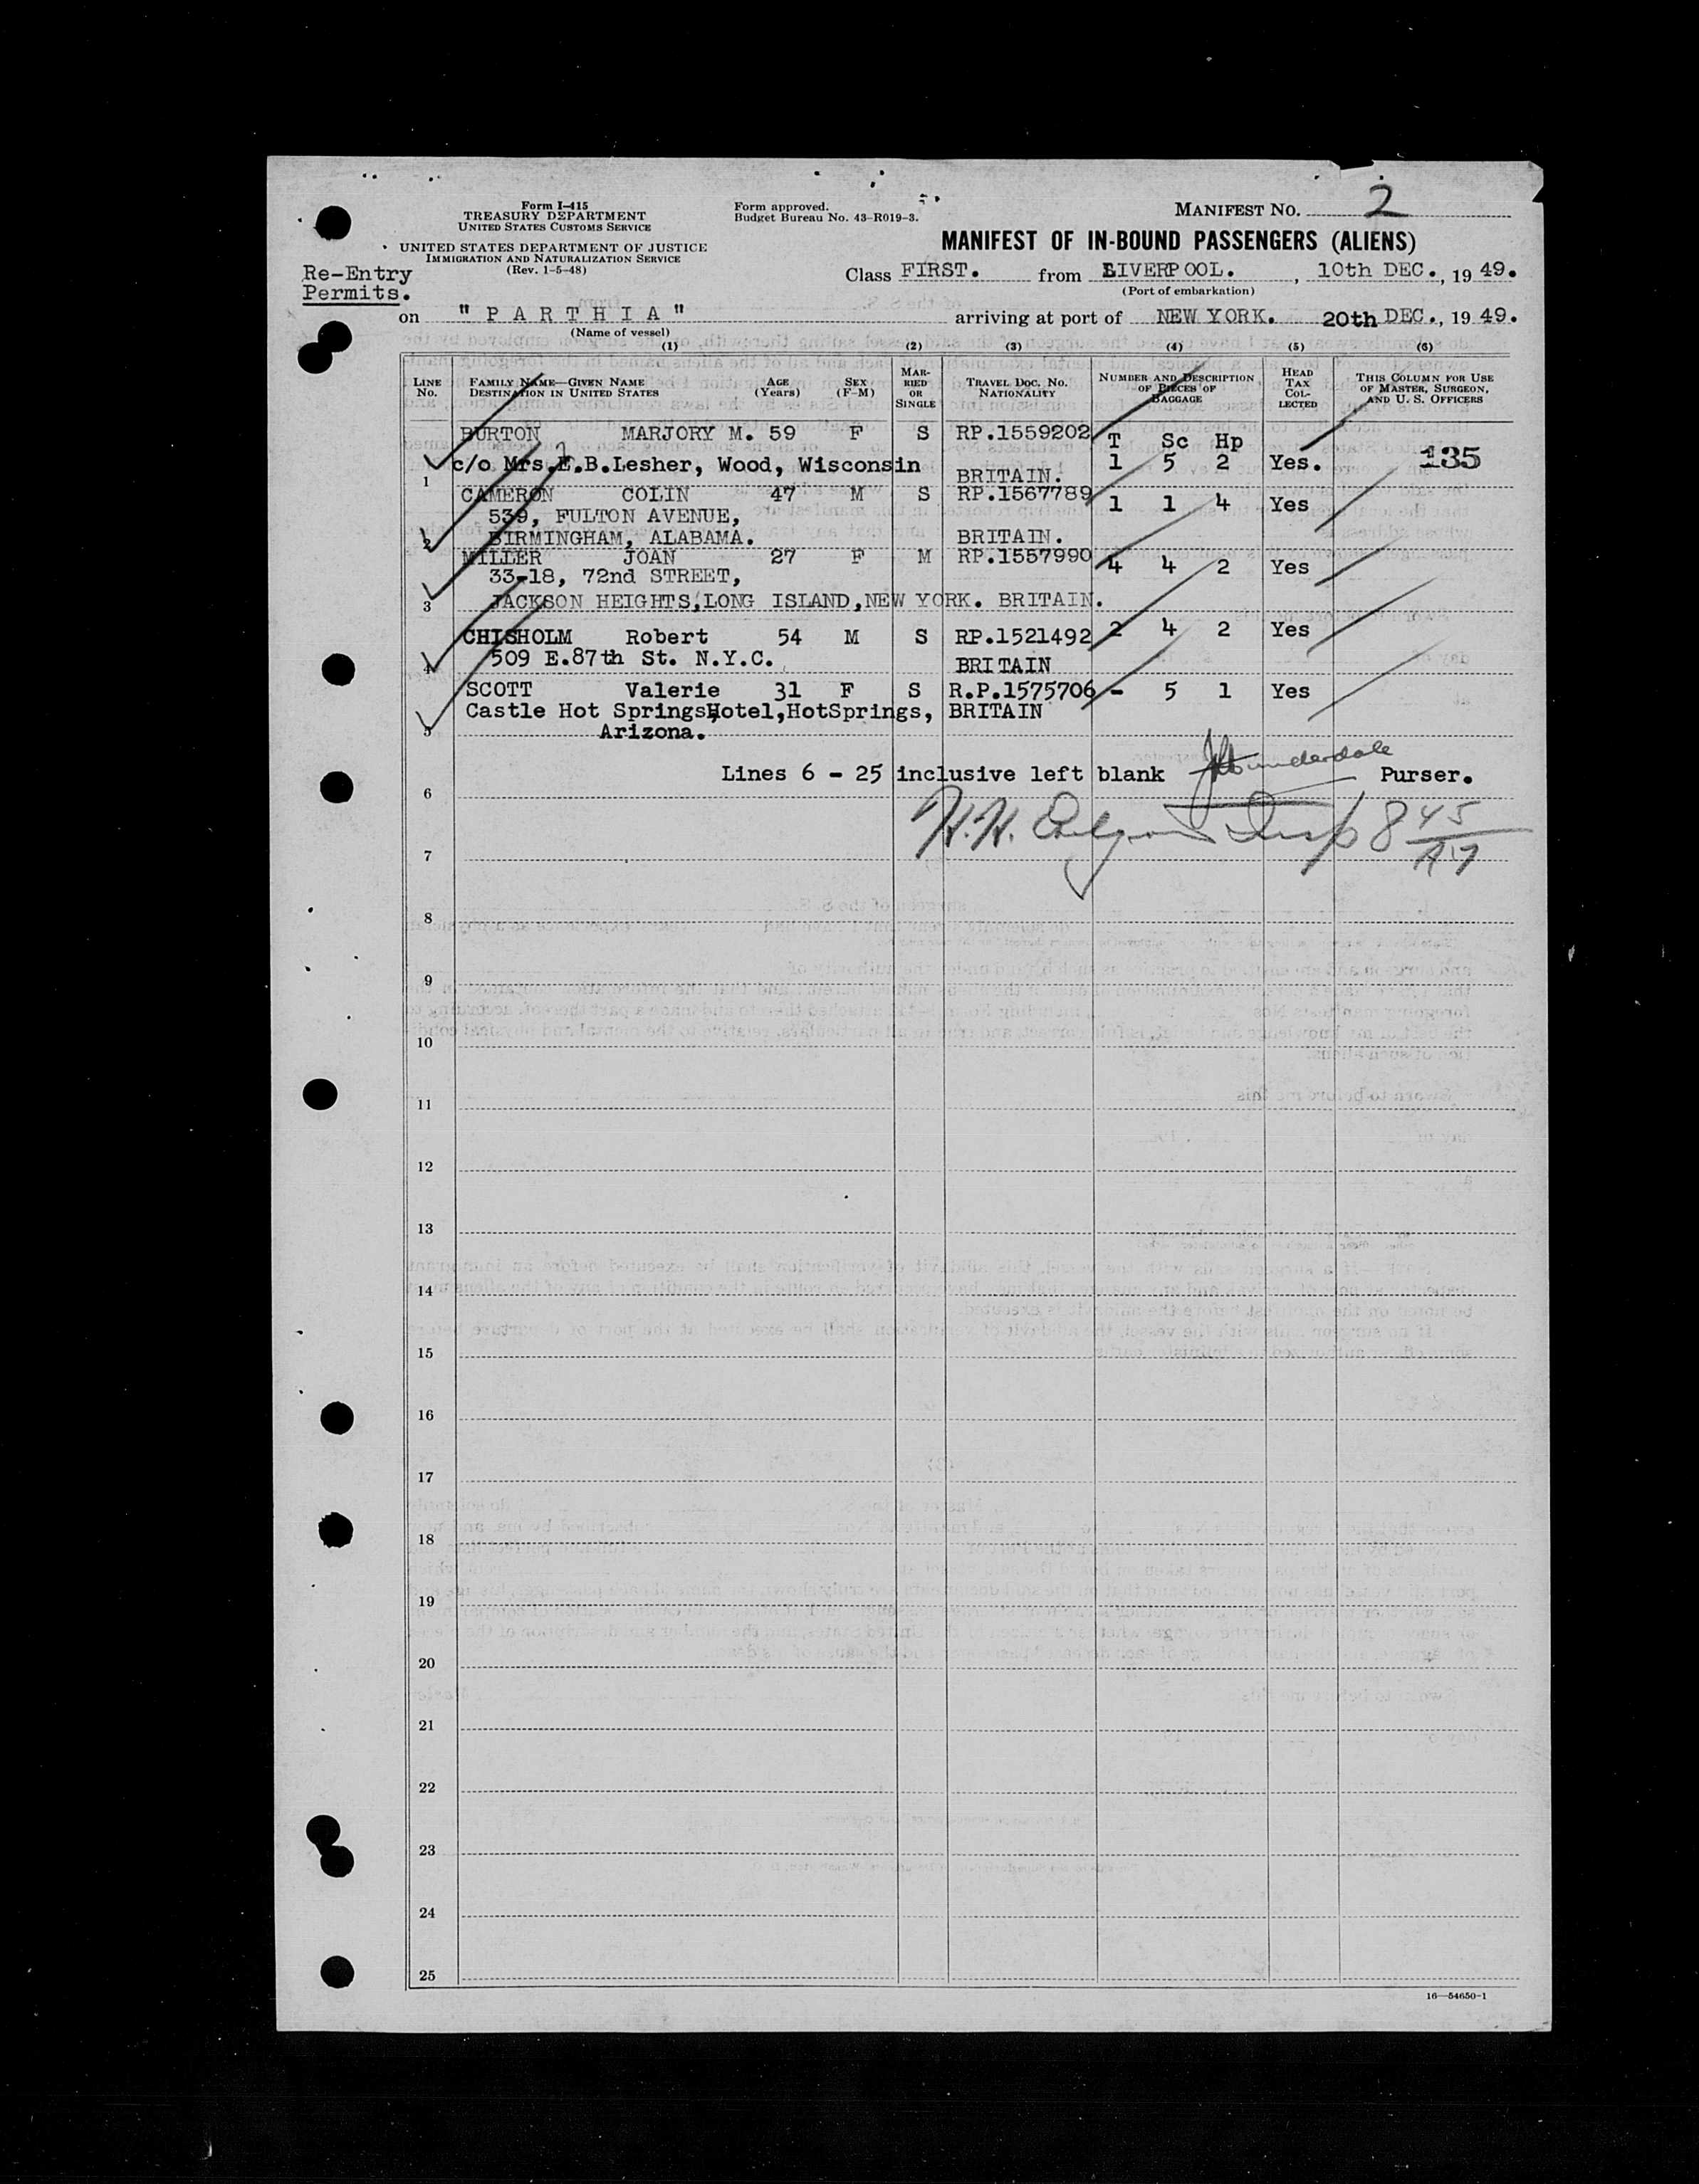 Form I-415
TREASURY DEPARTMENT
UNITED STATES CUSTOMS SERVICE
UNITED STATES DEPARTMENT OF JUSTICE
IMMIGRATION AND NATURALIZATION SERVICE
(Rev. 1-5-48)
Form approved.
Budget Bureau No. 43-R019-3.
MANIFEST NO. 2
MANIFEST OF IN-BOUND PASSENGERS (ALIENS)
Re-Entry
Permits.
Class FIRST. from LIVERPOOL. , 10th DEC., 19 49.
(Port of embarkation)
on "PARTHIA" arriving at port of NEW YORK. 20th DEC., 19 49.
(Name of vessel)
(1) (2) (3) (4) (5) (6)
LINE NO. FAMILY NAME—GIVEN NAME DESTINATION IN UNITED STATES AGE (Years) SEX (F-M) MARRIED OR SINGLE TRAVEL DOC. NO. NATIONALITY NUMBER AND DESCRIPTION OF PIECES OF BAGGAGE HEAD TAX COLLECTED THIS COLUMN FOR USE OF MASTER, SURGEON, AND U. S. OFFICERS
BURTON MARJORY M. 59 F S RP.1559202 T Sc Hp
1 c/o Mrs.E.B.Lesher, Wood, Wisconsin BRITAIN. 1 5 2 Yes. 135
CAMERON COLIN 47 M S RP.1567789 1 1 4 Yes
539, FULTON AVENUE,
2 BIRMINGHAM, ALABAMA. BRITAIN.
MILLER JOAN 27 F M RP.1557990 4 4 2 Yes
33-18, 72nd STREET,
3 JACKSON HEIGHTS,LONG ISLAND,NEW YORK. BRITAIN.
CHISHOLM Robert 54 M S RP.1521492 2 4 2 Yes
4 509 E.87th St. N.Y.C. BRITAIN
SCOTT Valerie 31 F S R.P.1575706 - 5 1 Yes
Castle Hot Springs,Hotel,HotSprings, BRITAIN
5 Arizona.
Lines 6 - 25 inclusive left blank Purser.
6
H.H. Insp 8 45
7
8
9
10
11
12
13
14
15
16
17
18
19
20
21
22
23
24
25
16—54650-1